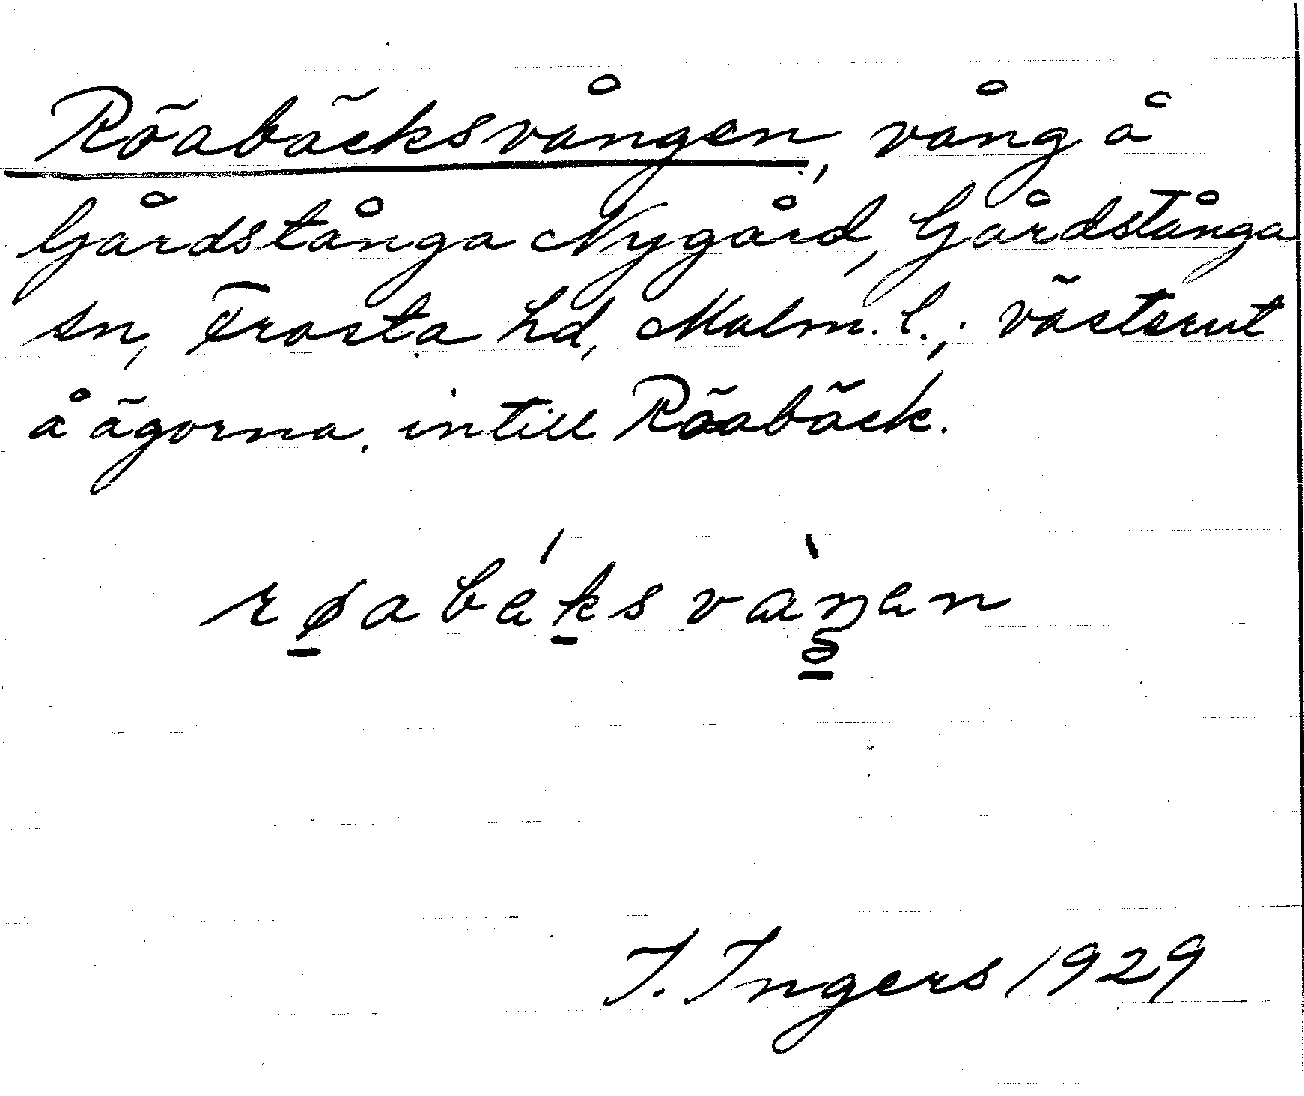 Röabäcksvången, vång å
Gårdstånga Nygård, Gårdstånga
sn, Frosta hd, Malm. l.; västerut
å ägorna, intill Röabäck.
røabéksvàŋen
I. Ingers 1929